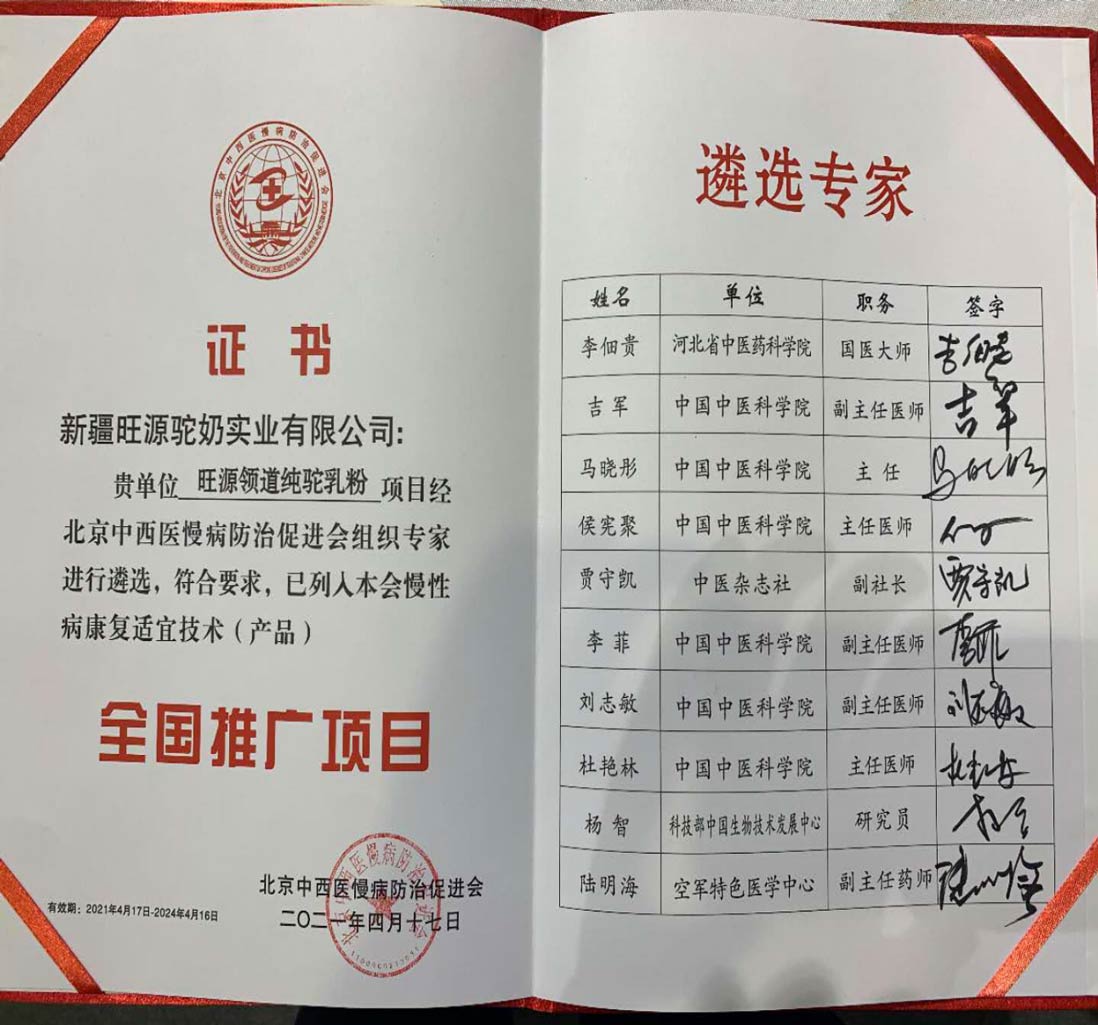 北京中西医慢病防治促进会
证书
新疆旺源驼奶实业有限公司:
贵单位 旺源领道纯驼乳粉 项目经
北京中西医慢病防治促进会组织专家
进行遴选，符合要求，已列入本会慢性
病康复适宜技术（产品）
全国推广项目
北京中西医慢病防治促进会
二〇二一年四月十七日
有效期：2021年4月17日-2024年4月16日
北京中西医慢病防治促进会
遴选专家
姓名 单位 职务 签字
李佃贵 河北省中医药科学院 国医大师 李佃贵
吉军 中国中医科学院 副主任医师 吉军
马晓彤 中国中医科学院 主任
侯宪聚 中国中医科学院 主任医师
贾守凯 中医杂志社 副社长 贾守凯
李菲 中国中医科学院 副主任医师 李菲
刘志敏 中国中医科学院 副主任医师 刘志敏
杜艳林 中国中医科学院 主任医师
杨智 科技部中国生物技术发展中心 研究员
陆明海 空军特色医学中心 副主任药师